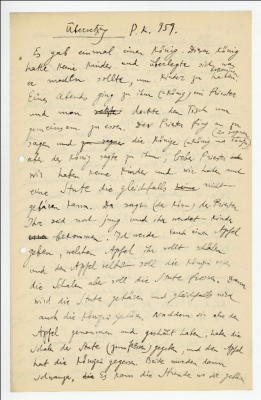 Übersetzg P.K. 959.
Es gab einmal einen König. Dieser König
hatte keine Kinder und überlegte sich was
er machen sollte, um Kinder zu haben.
Eines Abends ging zu ihm (z. König) ein Priester
und man deckte den Tisch um
gemeinsam zu essen. Der Priester fing an zu
sagen und die Könige
aber der König sagte zu ihm, lieber Priester
wir haben keine Kinder und wir haben auch
eine Stute die gleichfalls nicht
gebären kann. Da sagt (der Kön.) der Priester
Ihr seid noch jung und ihr werdet Kinder
bekommen. Ich werde euch einen Apfel
geben, welchen Apfel ihr sollt schälen
und den Apfel selbst soll die Königin essen
die Schalen aber soll die Stute fressen. Dann
wird die Stute gebären und gleichfalls wird
auch die Königin gebären. Nachdem sie also den
Apfel genommen und geschält haben, haben die
Schale der Stute gegeben, und den Apfel
hat die Königin gegessen. Beide wurden dann
schwanger. Es kam die Stunde wo sie gebären